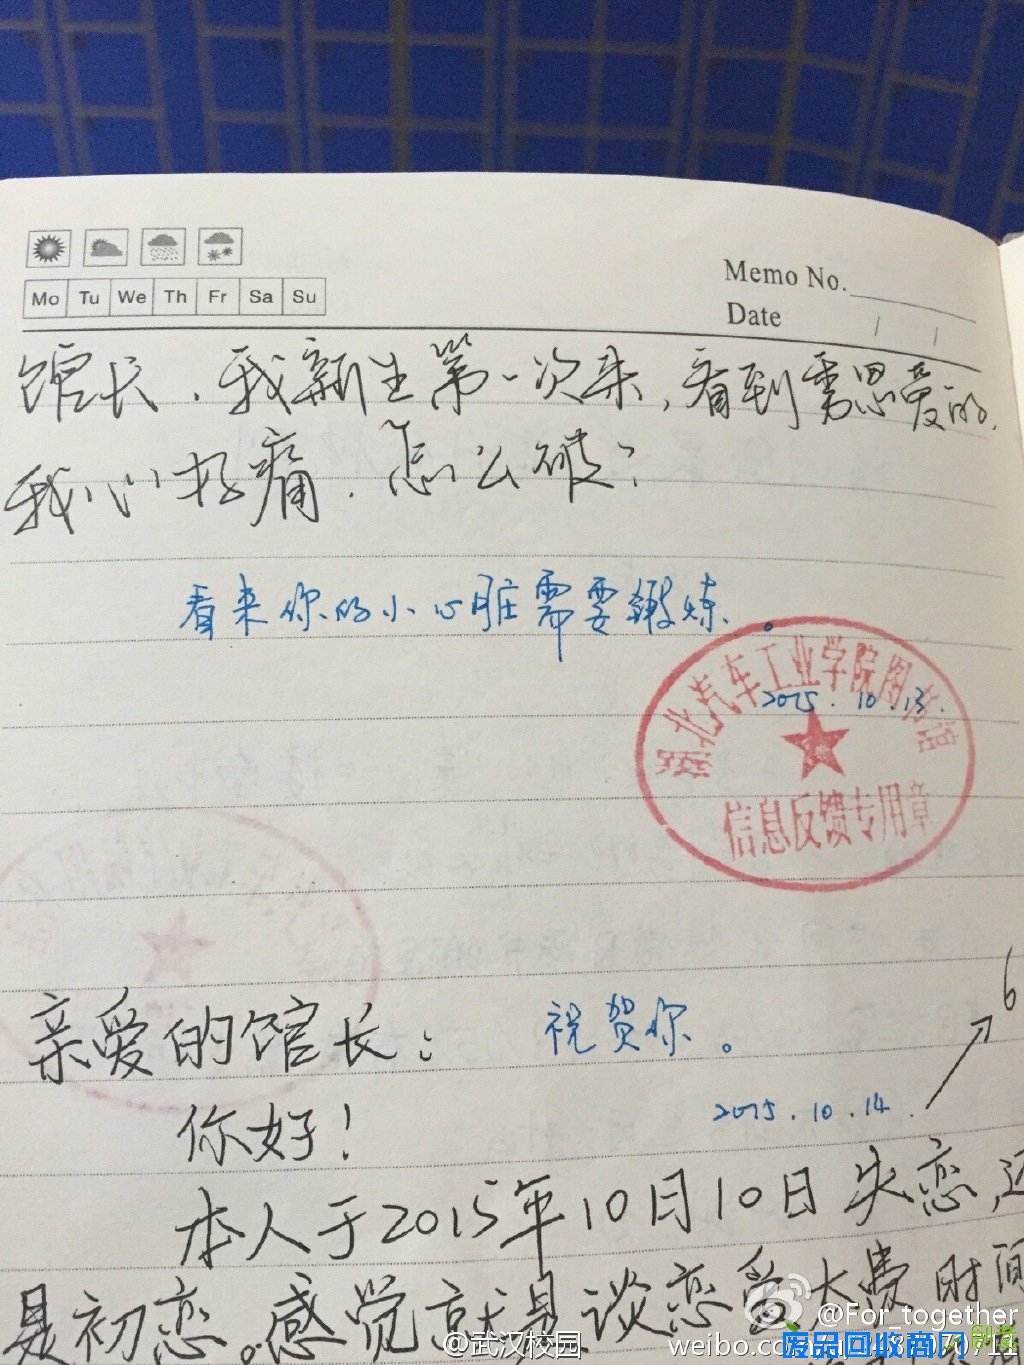 Mo Tu We Th Fr Sa Su
Memo No.
Date
馆长，我新生第一次来，看到秀恩爱的，
我心好痛，怎么破？
看来你的小心脏需要锻炼。
2015.10.13.
湖北汽车工业学院图书馆
信息反馈专用章
亲爱的馆长：
祝贺你。
6
你好！
2015.10.14.
本人于2015年10月10日失恋，还
是初恋。感觉就是谈恋爱太费时间
@For_together
@武汉校园
weibo.co
废品回收商网